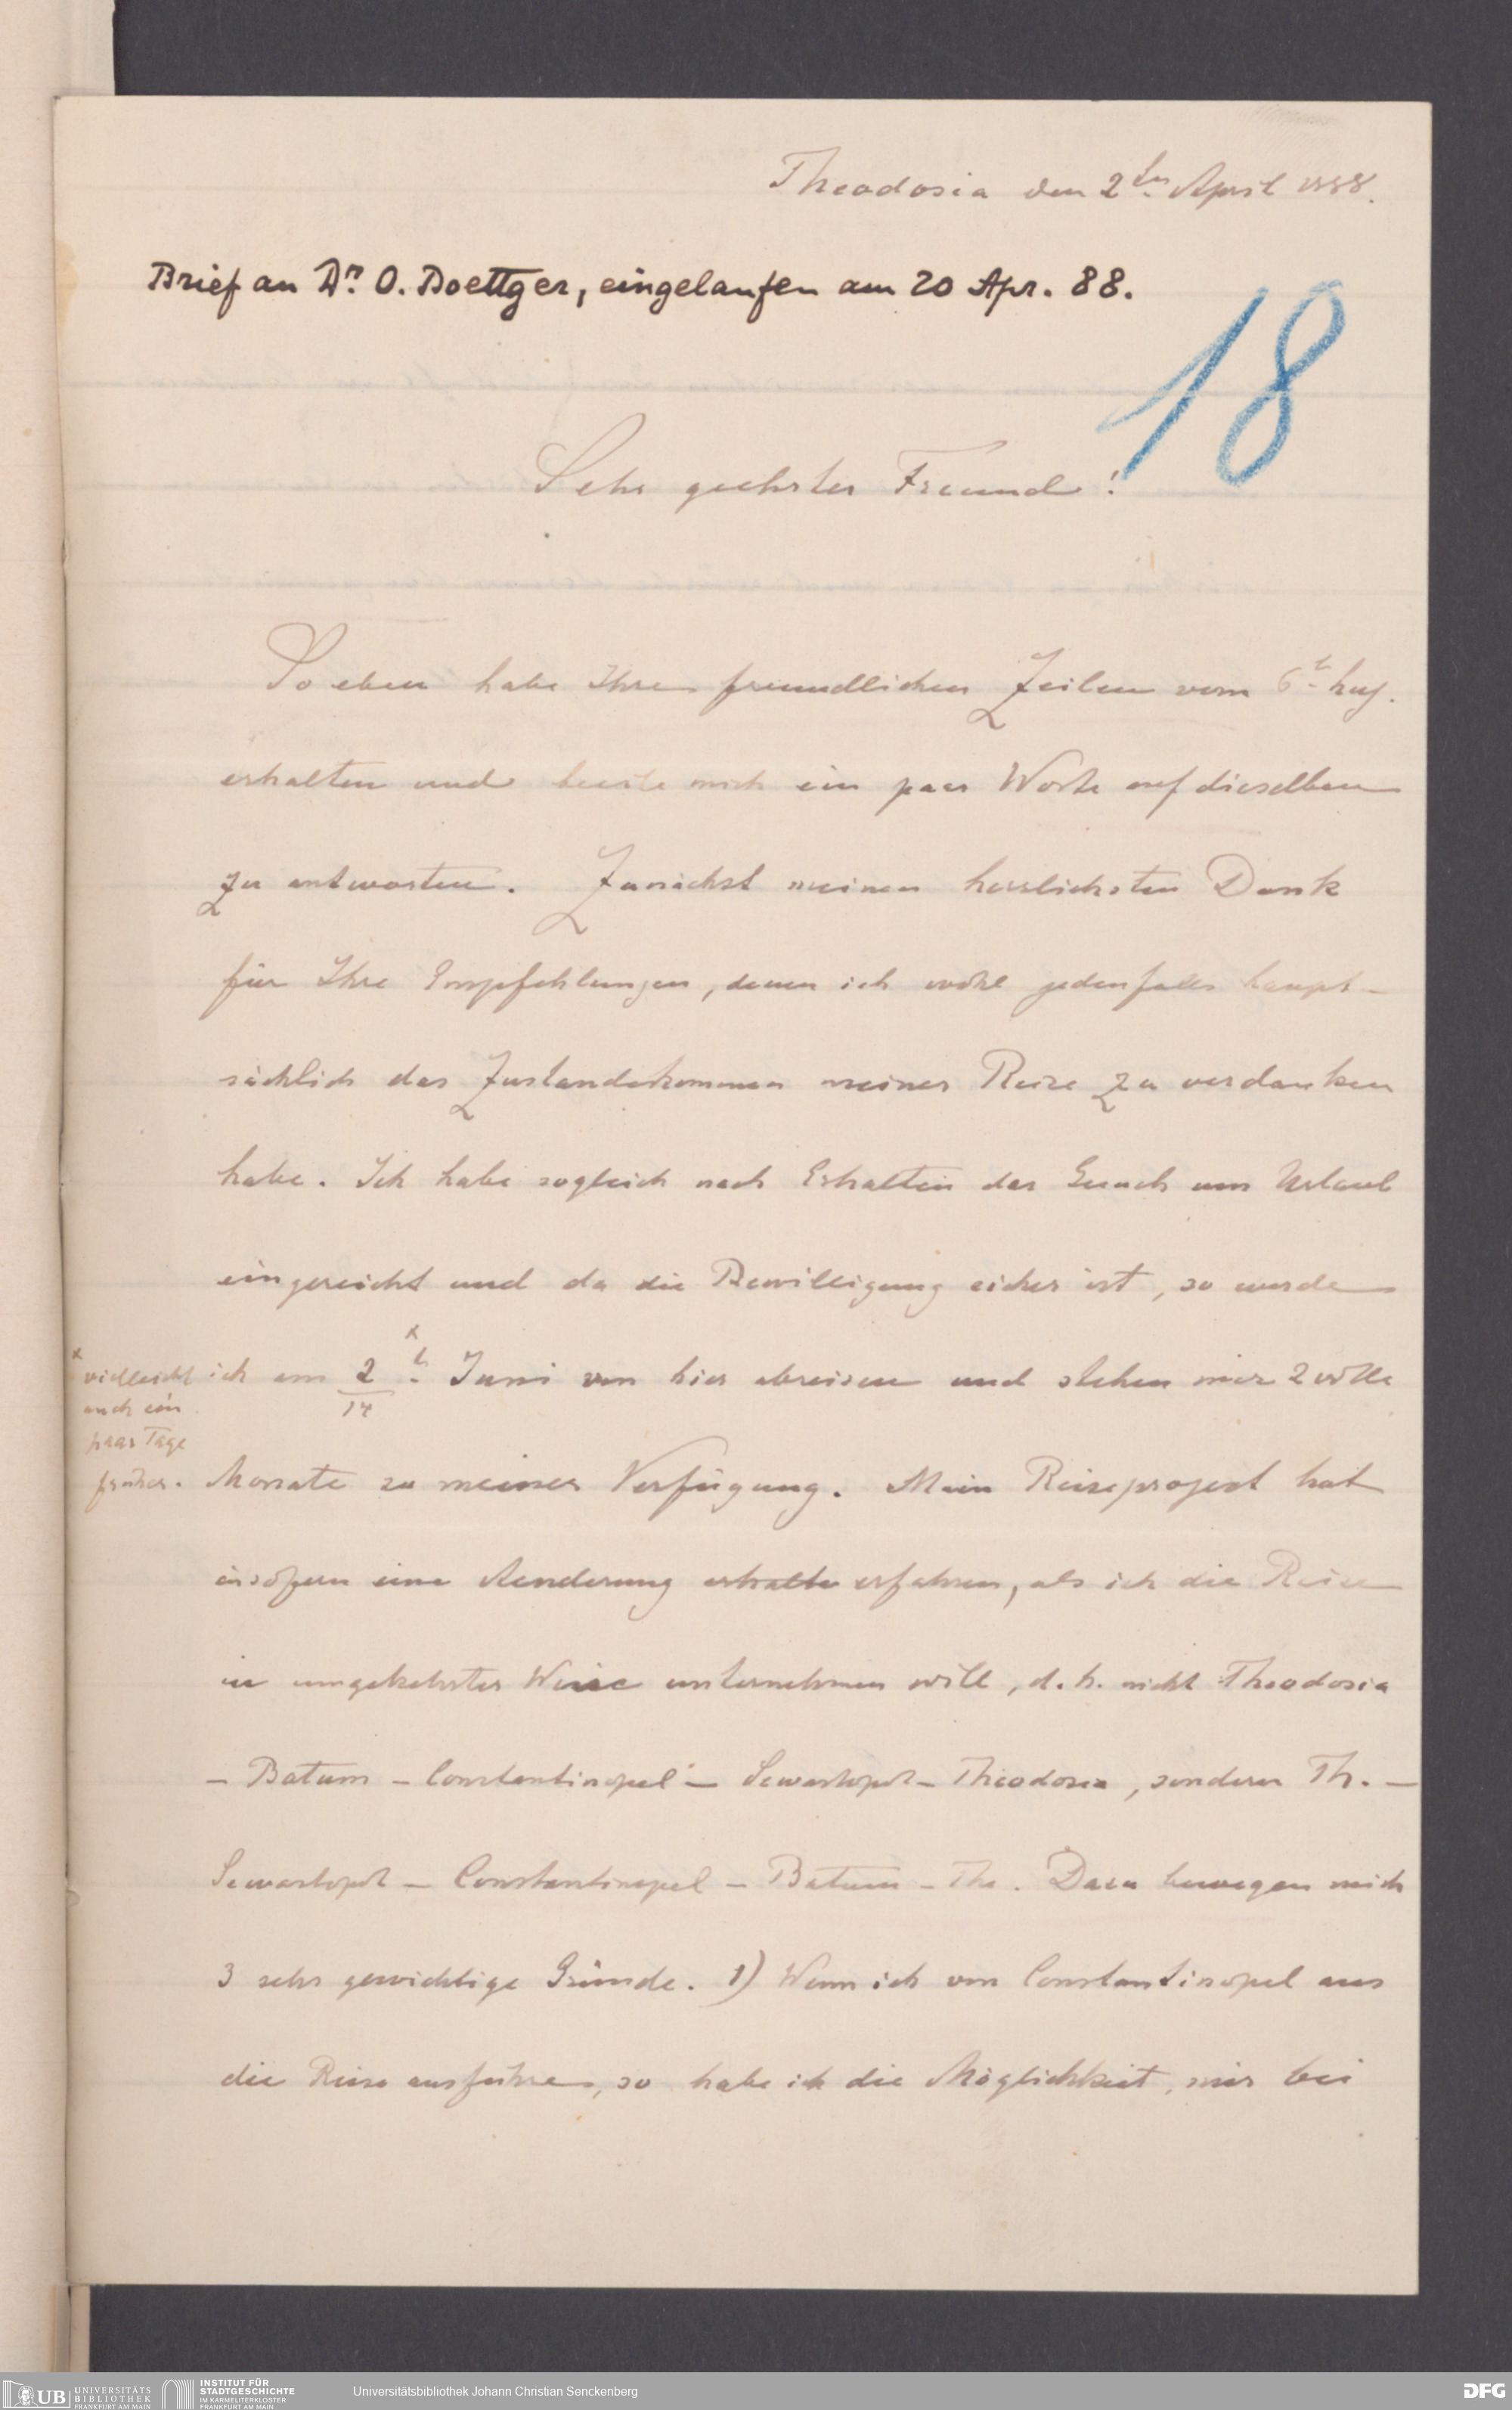 Theodosia den 2ten April 1888.
Brief an Dr. O. Boettger, eingelaufen am 20 Apr. 88.
18
Sehr geehrter Freund!
So eben habe Ihre freundlichen Zeilen vom 6t. huj.
erhalten und beeile mich ein paar Worte auf dieselben
zu antworten. Zunächst meinen herzlichsten Dank
für Ihre Empfehlungen, denen ich wohl jedenfalls haupt-
sächlich das Zustandekommen meiner Reise zu verdanken
habe. Ich habe sogleich nach Erhalten das Gesuch um Urlaub
eingereicht und da die Bewilligung sicher ist, so werde
ich am 2/14 x t. Juni von hier abreisen und stehen mir 2 volle
x vielleicht
auch ein
paar Tage
früher.
Monate zu meiner Verfügung. Mein Reiseproject hat
insofern eine Aenderung erhalte erfahren, als ich die Reise
in umgekehrter Weise unternehmen will, d. h. nicht Theodosia
– Batum – Constantinopel – Sewastopol – Theodosia, sondern Th. –
Sewastopol – Constantinopel – Batum – Th. Dazu bewegen mich
3 sehr gewichtige Gründe. 1) Wenn ich von Constantinopel aus
die Reise ausführe, so habe ich die Möglichkeit, mir bei
UB UNIVERSITÄTS
BIBLIOTHEK
FRANKFURT AM MAIN
INSTITUT FÜR
STADTGESCHICHTE
IM KARMELITERKLOSTER
FRANKFURT AM MAIN
Universitätsbibliothek Johann Christian Senckenberg
DFG